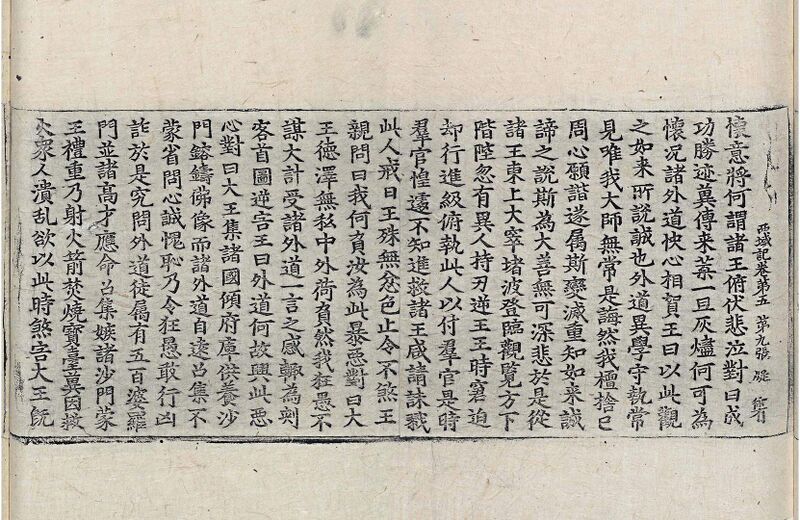 西域記卷第五 第九張
懷意將何謂諸王俯伏悲泣對曰成
功勝迹冀傳来葉一旦灰燼何可為
懷况諸外道快心相賀王曰以此觀
之如来所說誠也外道異學守執常
見唯我大師無常是誨然我檀捨已
周心願諧遂属斯變滅重知如来誠
諦之說斯為大善無可深悲於是從
諸王東上大窣堵波登臨觀覽方下
階陛忽有異人持刃逆王王時窘迫
却行進級俯執此人以付羣官是時
羣官惶遽不知進救諸王咸請誅戮
此人戒日王殊無忿色止令不煞王
親問曰我何負汝為此暴惡對曰大
王德澤無私中外荷負然我狂愚不
謀大計受諸外道一言之惑輒為刺
客首圖逆害王曰外道何故興此惡
心對曰大王集諸國傾府庫供養沙
門鎔鑄佛像而諸外道自遠召集不
蒙省問心誠愧恥乃令狂愚敢行凶
詐於是究問外道徒属有五百婆羅
門並諸高才應命召集嫉諸沙門蒙
王禮重乃射火箭焚燒寶臺冀因救
火衆人潰乱欲以此時煞害大王既